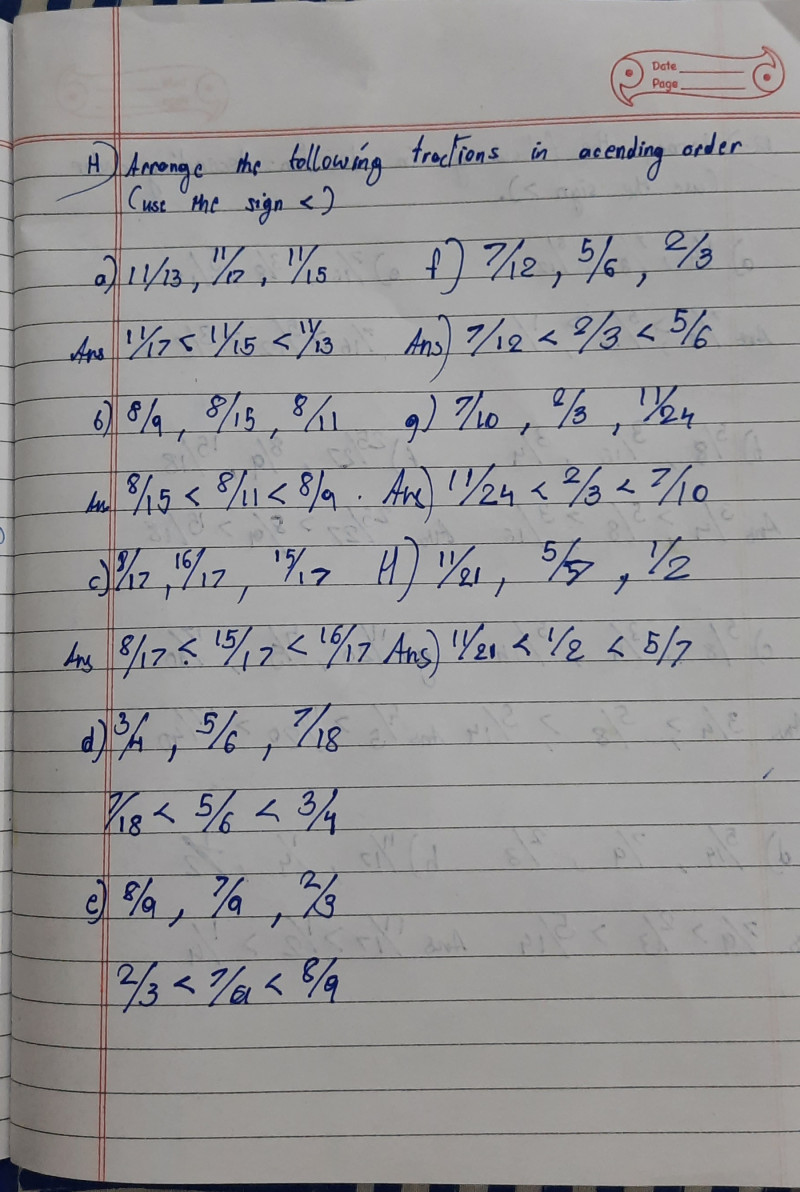 Date
Page
H) Arrange the following fractions in acending order
(use the sign <)
a) 11/13, 11/17, 11/15
f) 7/12, 5/6, 2/3
Ans 11/17 < 11/15 < 11/13
Ans) 7/12 < 2/3 < 5/6
b) 8/9, 8/15, 8/11
g) 7/10, 2/3, 11/24
An 8/15 < 8/11 < 8/9.
Ans) 11/24 < 2/3 < 7/10
c) 8/17, 16/17, 15/17
H) 11/21, 5/7, 1/2
Ans 8/17 < 15/17 < 16/17
Ans) 11/21 < 1/2 < 5/7
d) 3/4, 5/6, 7/18
7/18 < 5/6 < 3/4
e) 8/9, 7/9, 2/3
2/3 < 7/9 < 8/9